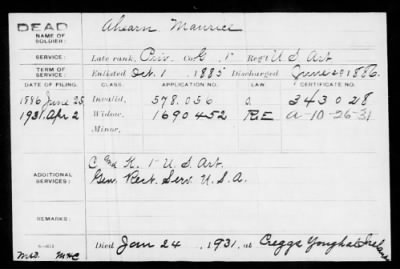 DEAD
NAME OF
SOLDIER:
Ahearn Maurice
SERVICE:
Late rank, Priv. Co. G, 1" Reg't U S Art
TERM OF
SERVICE:
Enlisted Oct. 1 1885 Discharged June 1886.
DATE OF FILING. CLASS. APPLICATION NO. LAW. CERTIFICATE NO.
1886 June 25, Invalid, 578.056 343028
1931, Apr 2 Widow, 1690452 R.E a-10-26-31
Minor,
ADDITIONAL
SERVICES:
C K. 1" U.S. Art.
Gen. Rect. Serv. U.S.A.
REMARKS:
Died Jan 24, 1931, at Creggs Youghal Ireland